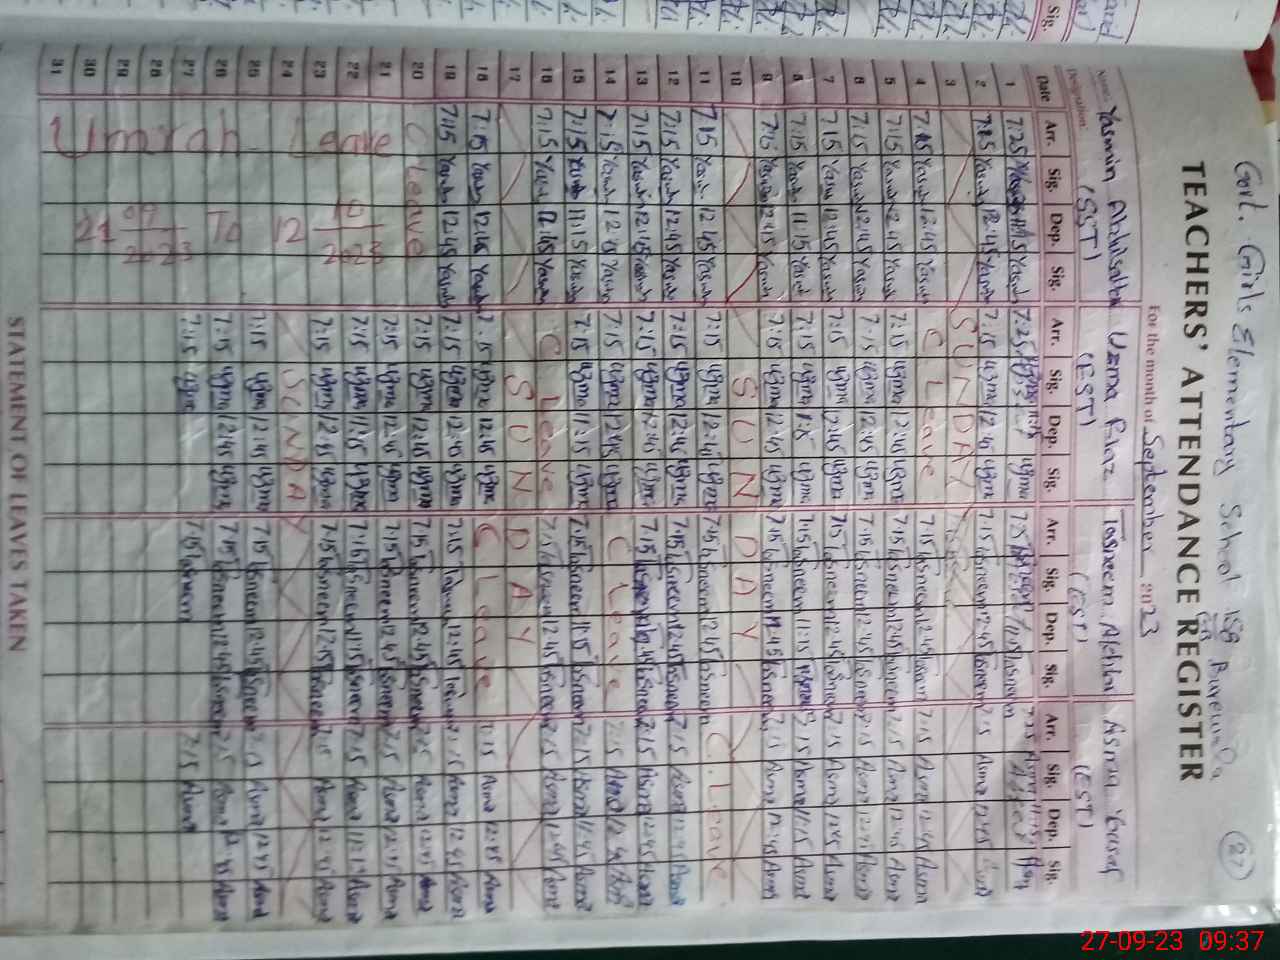 Govt. Girls Elementary School 158 GB Bureuala
27
TEACHERS' ATTENDANCE REGISTER
For the month of September 2023
Name: Yasmin Uzma Riaz Tasneem Akhtar Asma Yousaf
Designation: (SST) (EST) (EST) (EST)
Date Arr. Sig. Dep. Sig. Arr. Sig. Dep. Sig. Arr. Sig. Dep. Sig. Arr. Sig. Dep. Sig.
1 7:25 Yasmin Yasmin 7:25 Uzma Uzma 7:25 Tasneem 7:25 Asma 11:15 Asma
2 7:15 Yasmin 12:45 Yasmin 7:15 Uzma 12:45 Uzma 7:15 Tasneem 12:45 Tasneem 7:15 Asma 12:45 Asma
3 SUNDAY
4 7:15 Yasmin 12:45 Yasmin C Leave 7:15 Tasneem 12:45 Tasneem 7:15 Asma 12:45 Asma
5 7:15 Yasmin 12:45 Yasmin 7:15 Uzma 12:45 Uzma 7:15 Tasneem 12:45 Tasneem 7:15 Asma 12:45 Asma
6 7:15 Yasmin 12:45 Yasmin 7:15 Uzma 12:45 Uzma 7:15 Tasneem 12:45 Tasneem 7:15 Asma 12:45 Asma
7 7:15 Yasmin 12:45 Yasmin 7:15 Uzma 12:45 Uzma 7:15 Tasneem 12:45 Tasneem 7:15 Asma 12:45 Asma
8 7:15 Yasmin 11:15 Yasmin 7:15 Uzma 11:15 Uzma 7:15 Tasneem 11:15 Tasneem 7:15 Asma 11:15 Asma
9 7:15 Yasmin 12:45 Yasmin 7:15 Uzma 12:45 Uzma 7:15 Tasneem 12:45 Tasneem 7:15 Asma 12:45 Asma
10 SUNDAY
11 7:15 Yasmin 12:45 Yasmin 7:15 Uzma 12:45 Uzma 7:15 Tasneem 12:45 Tasneem C. Leave
12 7:15 Yasmin 12:45 Yasmin 7:15 Uzma 12:45 Uzma 7:15 Tasneem 12:45 Tasneem 7:15 Asma 12:45 Asma
13 7:15 Yasmin 12:45 Yasmin 7:15 Uzma 12:45 Uzma 7:15 Tasneem 12:45 Tasneem 7:15 Asma 12:45 Asma
14 7:15 Yasmin 12:45 Yasmin 7:15 Uzma 12:45 Uzma C Leave 7:15 Asma 12:45 Asma
15 7:15 Yasmin 11:15 Yasmin 7:15 Uzma 11:15 Uzma 7:15 Tasneem 11:15 Tasneem 7:15 Asma 11:45 Asma
16 7:15 Yasmin 12:45 Yasmin C Leave 7:15 Tasneem 12:45 Tasneem 7:15 Asma 12:45 Asma
17 SUNDAY
18 7:15 Yasmin 12:45 Yasmin 7:15 Uzma 12:45 Uzma C Leave 7:15 Asma 12:45 Asma
19 7:15 Yasmin 12:45 Yasmin 7:15 Uzma 12:45 Uzma 7:15 Tasneem 12:45 Tasneem 7:15 Asma 12:45 Asma
20 C Leave 7:15 Uzma 12:45 Uzma 7:15 Tasneem 12:45 Tasneem 7:15 Asma 12:45 Asma
21 7:15 Uzma 12:45 Uzma 7:15 Tasneem 12:45 Tasneem 7:15 Asma 12:45 Asma
22 7:15 Uzma 11:15 Uzma 7:15 Tasneem 11:15 Tasneem 7:15 Asma 11:15 Asma
23 7:15 Uzma 12:45 Uzma 7:15 Tasneem 12:45 Tasneem 7:15 Asma 12:45 Asma
24 SUNDAY
25 7:15 Uzma 12:45 Uzma 7:15 Tasneem 12:45 Tasneem 7:15 Asma 12:45 Asma
26 7:15 Uzma 12:45 Uzma 7:15 Tasneem 12:45 Tasneem 7:15 Asma 12:45 Asma
27 7:15 Uzma 7:15 Tasneem 7:15 Asma
28
29
30
31
Umrah Leave
21 09 2023 To 12 10 2023
STATEMENT OF LEAVES TAKEN
27-09-23 09:37